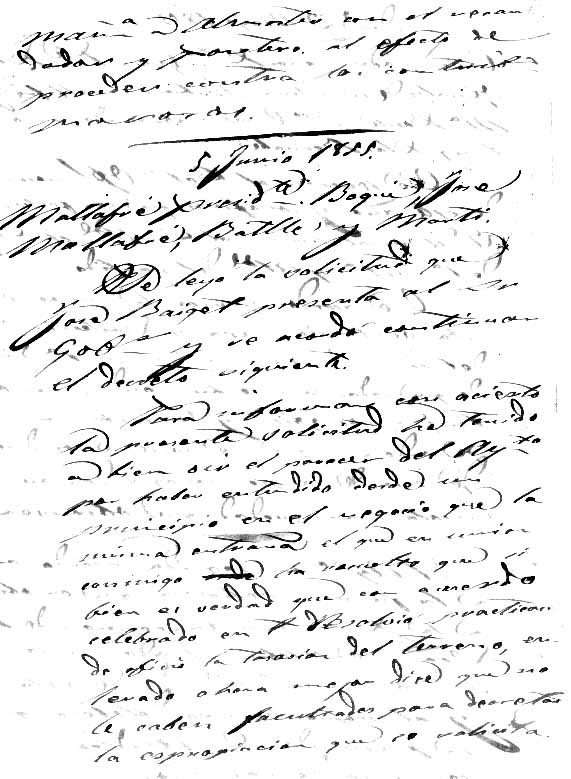 mañana Almontes con el recau
dador y Porotero al efecto de
proceder contra los contri
morosos.
5 Junio 1855.
Mallafré, presid.te Boqué, Jose
Mallafré, Batlle, y Marti.
Se leyo la solicitud que
José Baiget presenta al Sr
Gob.r y se acordo continuar
el decreto siguiente.
Para informar con acierto
la presente solicitud he tenido
a bien oir el parecer del Ay.to
por haber entendido desde un
principio en el negocio que la
misma entraña el que en union
conmigo ha resuelto que si
bien es verdad que con acuerdo
celebrado en se resolvió practicar
de oficio la tasacion del terreno, en
terado ahora mejor dice que no
le caben facultades para decretar
la espropiacion que se solicita.